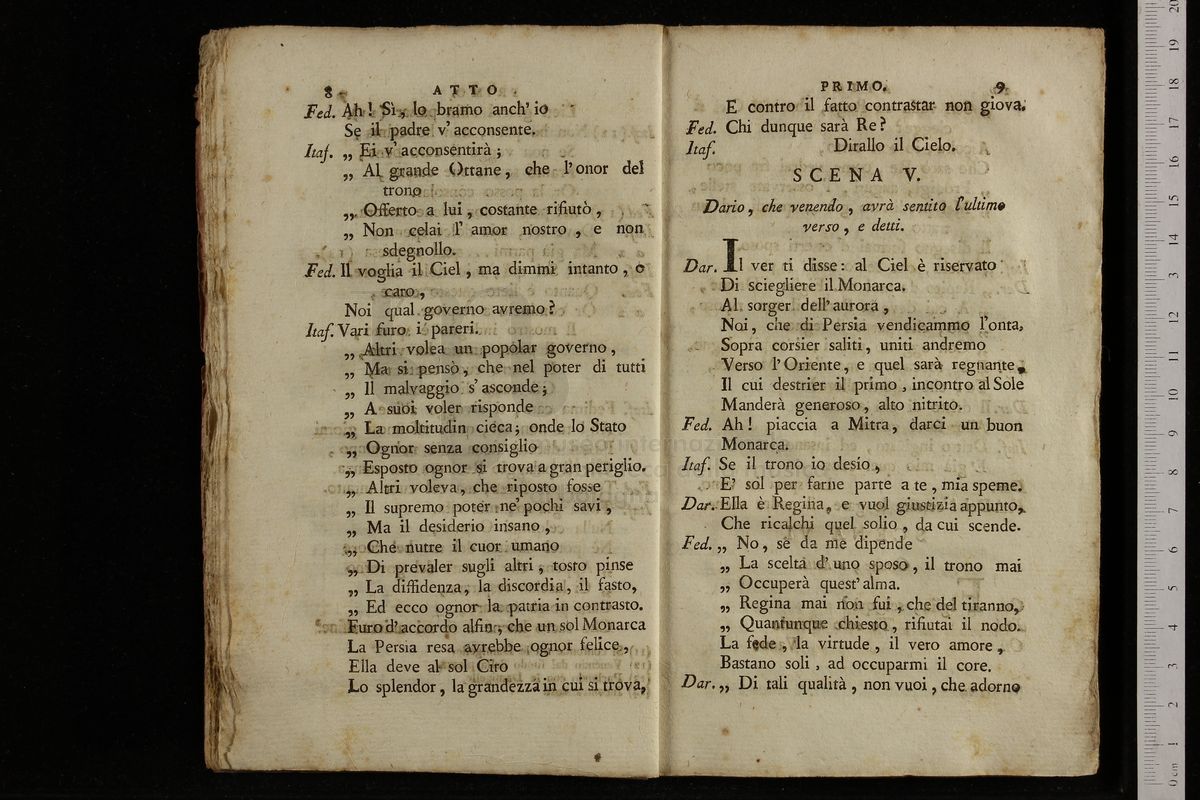 8 ATTO
Fed. Ah! Sì, lo bramo anch' io
Se il padre v' acconsente.
Itaf. „ Ei v' acconsentirà;
„ Al grande Ottane, che l' onor del
trono
„ Offerto a lui, costante rifiutò,
„ Non celai l' amor nostro, e non
sdegnollo.
Fed. Il voglia il Ciel, ma dimmi intanto, o
caro,
Noi qual governo avremo?
Itaf. Vari furo i pareri.
„ Altri volea un popolar governo,
„ Ma si pensò, che nel poter di tutti
„ Il malvaggio s' asconde;
„ A suoi voler risponde
„ La moltitudin cieca; onde lo Stato
„ Ognor senza consiglio
„ Esposto ognor si trova a gran periglio.
„ Altri voleva, che riposto fosse
„ Il supremo poter ne' pochi savi,
„ Ma il desiderio insano,
„ Che nutre il cuor umano
„ Di prevaler sugli altri, tosto pinse
„ La diffidenza, la discordia, il fasto,
„ Ed ecco ognor la patria in contrasto.
Furo d' accordo alfin, che un sol Monarca
La Persia resa avrebbe ognor felice,
Ella deve al sol Ciro
Lo splendor, la grandezza in cui si trova,
PRIMO. 9
E contro il fatto contrastar non giova.
Fed. Chi dunque sarà Re?
Itaf. Dirallo il Cielo.
SCENA V.
Dario, che venendo, avrà sentito l'ultimo
verso, e detti.
Dar. Il ver ti disse: al Ciel è riservato
Di sciegliere il Monarca.
Al sorger dell' aurora,
Noi, che di Persia vendicammo l'onta,
Sopra corsier saliti, uniti andremo
Verso l' Oriente, e quel sarà regnante,
Il cui destrier il primo, incontro al Sole
Manderà generoso, alto nitrito.
Fed. Ah! piaccia a Mitra, darci un buon
Monarca.
Itaf. Se il trono io desio,
E' sol per farne parte a te, mia speme.
Dar. Ella è Regina, e vuol giustizia appunto,
Che ricalchi quel solio, da cui scende.
Fed. „ No, se da me dipende
„ La scelta d' uno sposo, il trono mai
„ Occuperà quest' alma.
„ Regina mai non fui, che del tiranno,
„ Quantunque chiesto, rifiutai il nodo.
La fede, la virtude, il vero amore,
Bastano soli, ad occuparmi il core.
Dar. „ Di tali qualità, non vuoi, che adorno